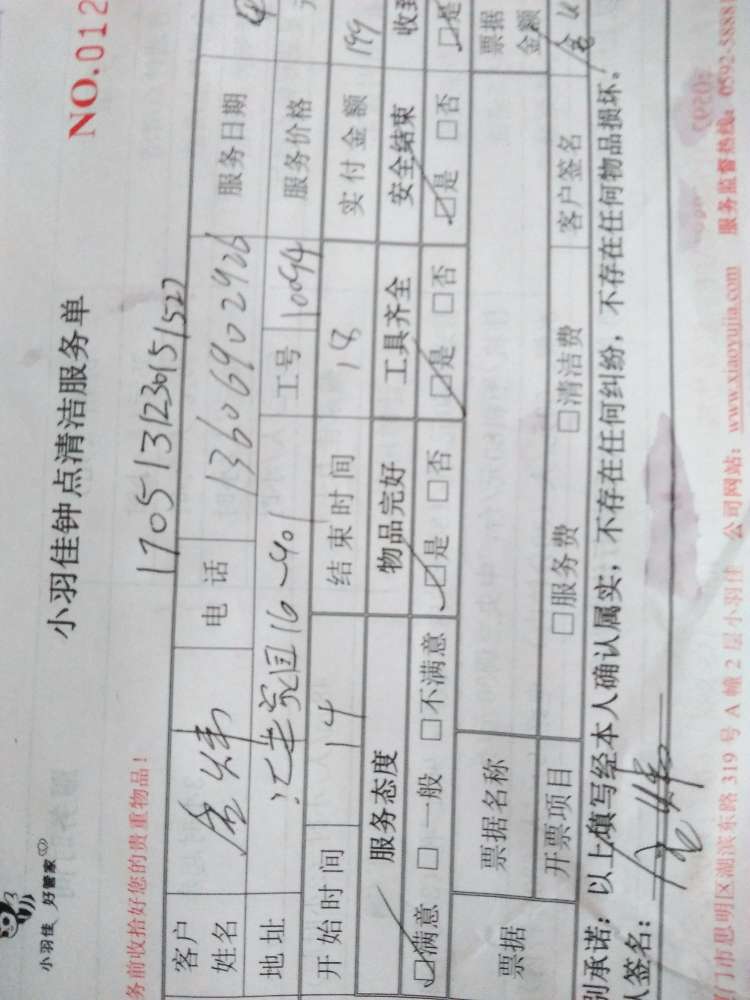 小羽佳 好管家
小羽佳钟点清洁服务单
NO.012
务前收拾好您的贵重物品!
1705131230151527
客户姓名 电话 13606902926 服务日期
地址 16-401 工号 10094 服务价格
开始时间 14 结束时间 18 实付金额 199
服务态度 物品完好 工具齐全 安全结束 收到
☑满意 □一般 □不满意 ☑是 □否 ☑是 □否 ☑是 □否 ☑是
票据 票据名称 票据金额
开票项目 □服务费 □清洁费 客户签名
别承诺:以上填写经本人确认属实,不存在任何纠纷,不存在任何物品损坏。
签名:
门市思明区湖滨东路 319 号 A 幢 2 层小羽佳 公司网站:www.xiaoyujia.com 服务监督热线:0592-5881